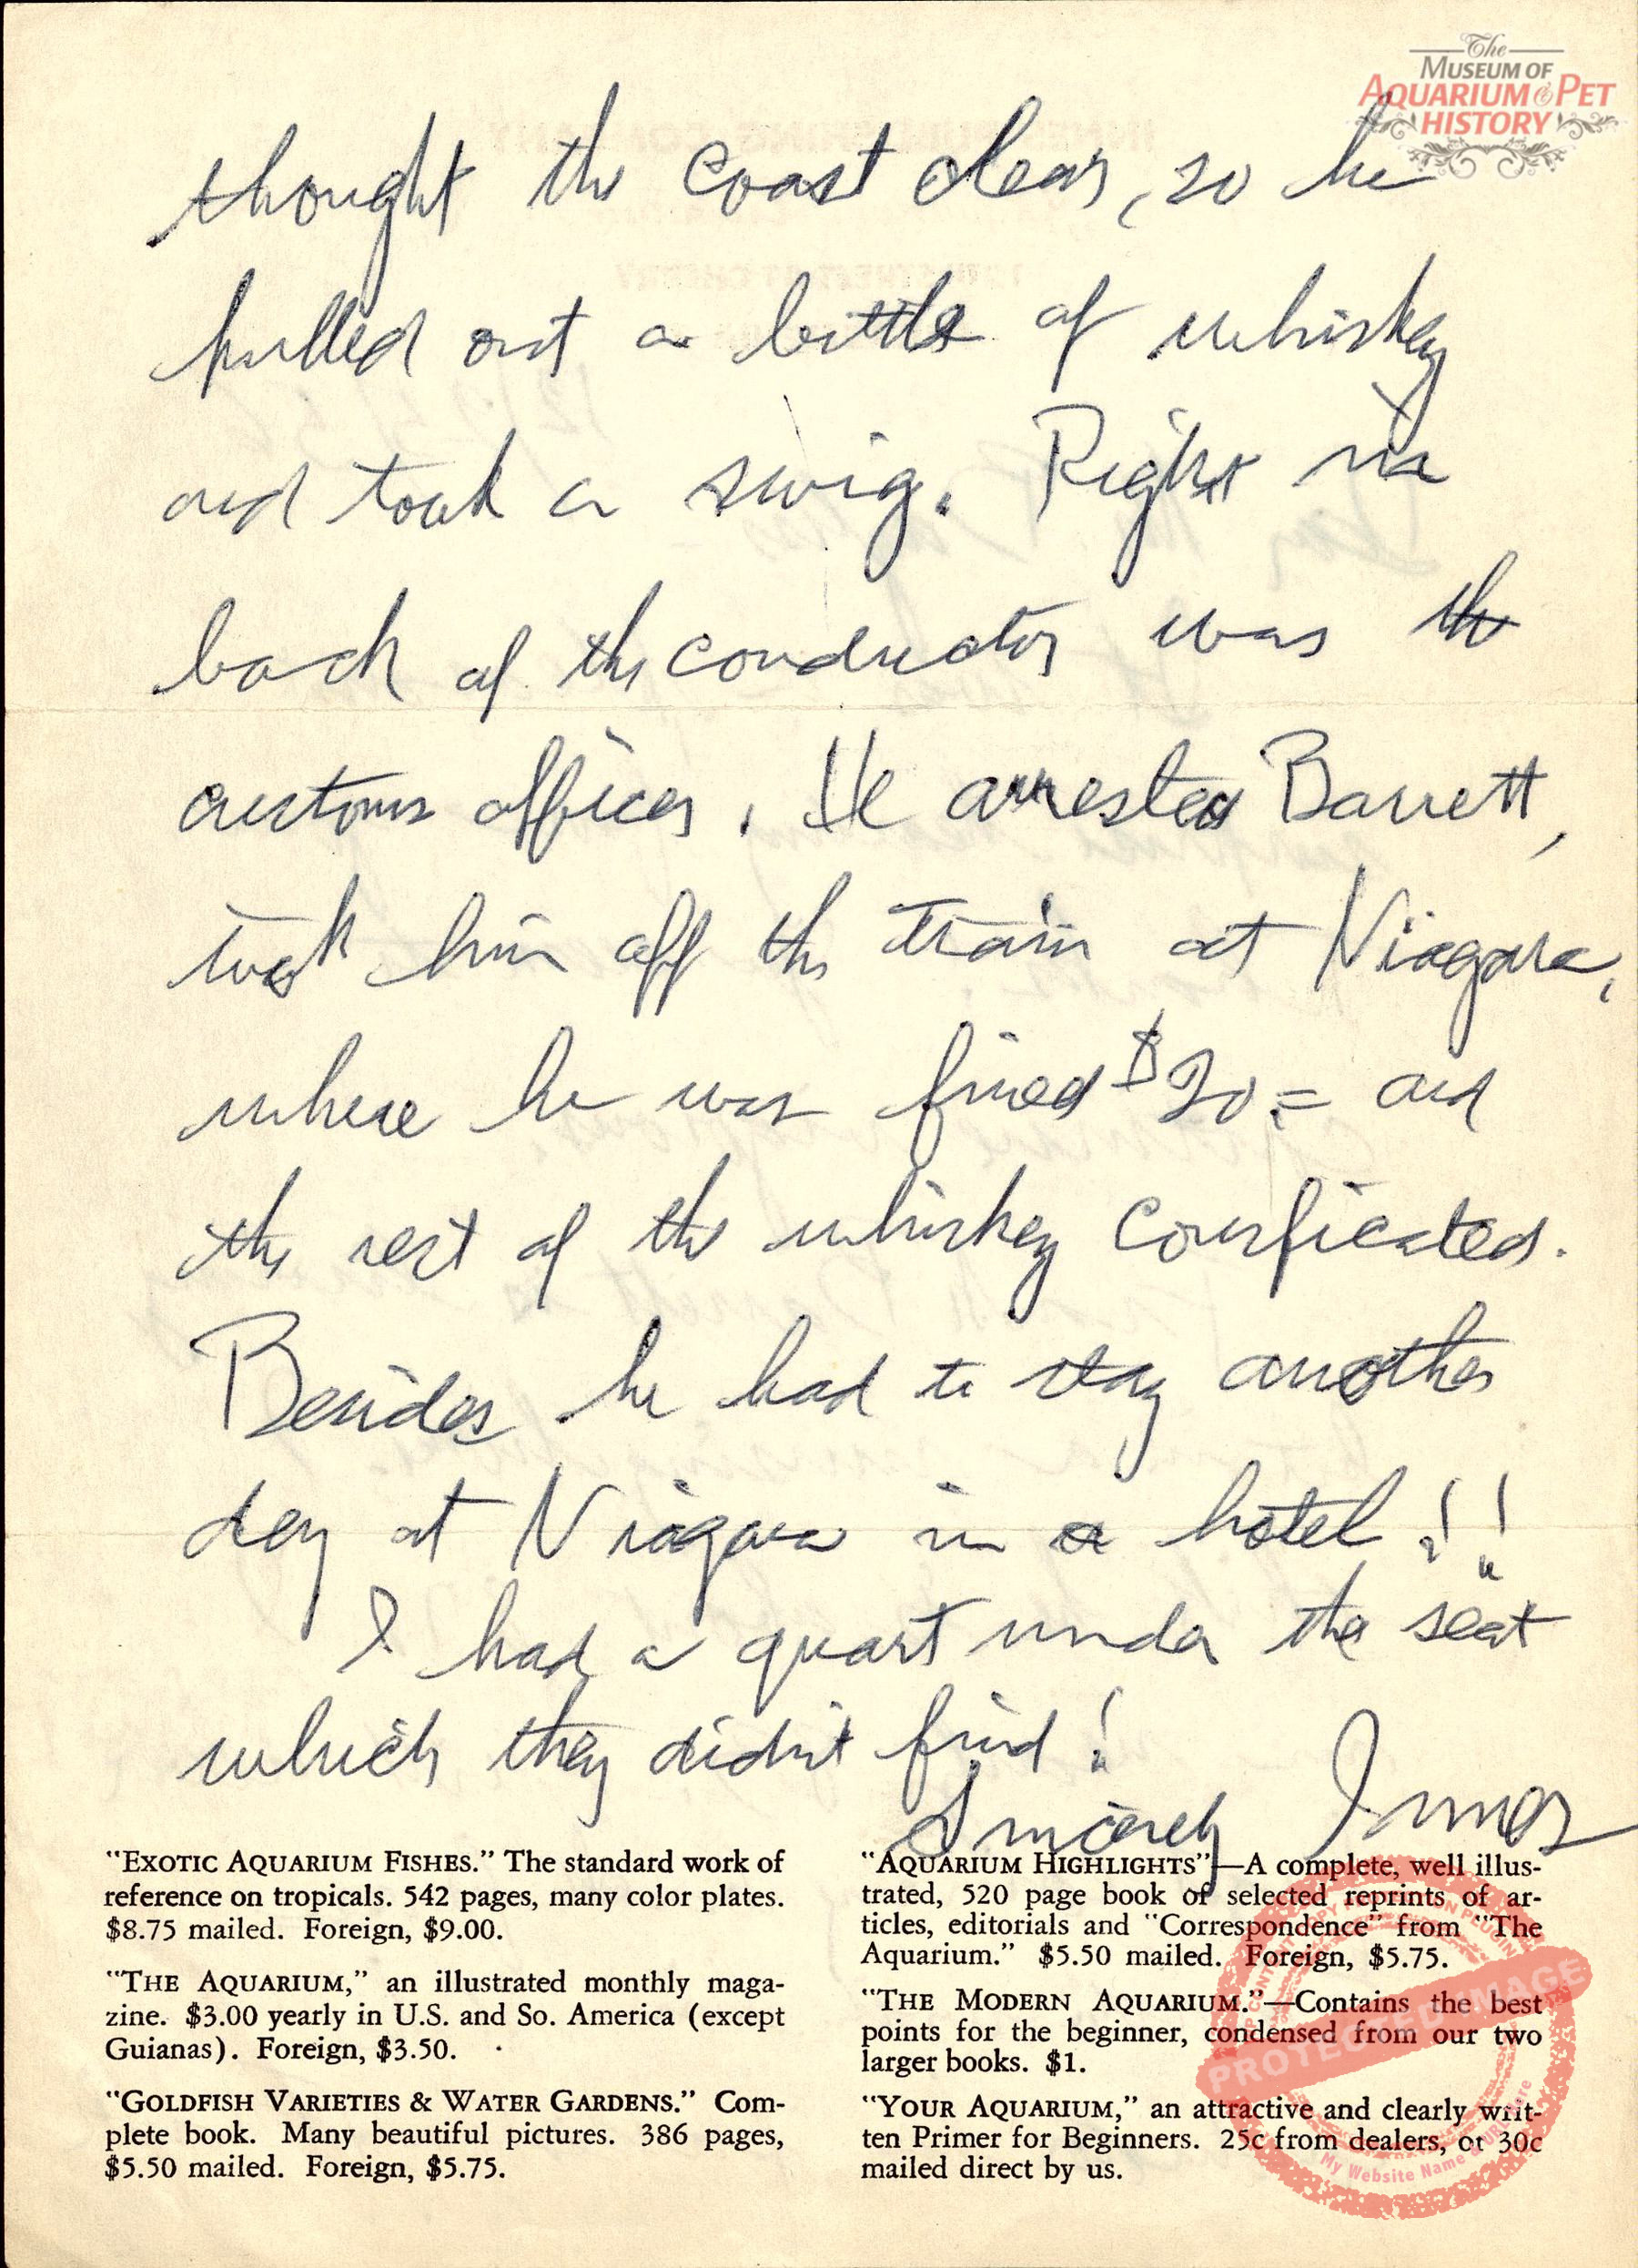 The
MUSEUM OF
AQUARIUM & PET
HISTORY
thought the coast clear, so he
pulled out a bottle of whiskey
and took a swig. Right in
back of the conductor was the
customs officer. He arrested Barrett,
took him off the train at Niagara,
where he was fined $20.= and
the rest of the whiskey consficated.
Besides he had to stay another
day at Niagara in a hotel!!
I had a quart under the seat
which they didn't find!
Sincerely Innes
"EXOTIC AQUARIUM FISHES." The standard work of
reference on tropicals. 542 pages, many color plates.
$8.75 mailed. Foreign, $9.00.
"THE AQUARIUM," an illustrated monthly maga-
zine. $3.00 yearly in U.S. and So. America (except
Guianas). Foreign, $3.50.
"GOLDFISH VARIETIES & WATER GARDENS." Com-
plete book. Many beautiful pictures. 386 pages,
$5.50 mailed. Foreign, $5.75.
"AQUARIUM HIGHLIGHTS"—A complete, well illus-
trated, 520 page book of selected reprints of ar-
ticles, editorials and "Correspondence" from "The
Aquarium." $5.50 mailed. Foreign, $5.75.
"THE MODERN AQUARIUM."—Contains the best
points for the beginner, condensed from our two
larger books. $1.
"YOUR AQUARIUM," an attractive and clearly writ-
ten Primer for Beginners. 25c from dealers, or 30c
mailed direct by us.
PROTECTED IMAGE
My Website Name & URL Here